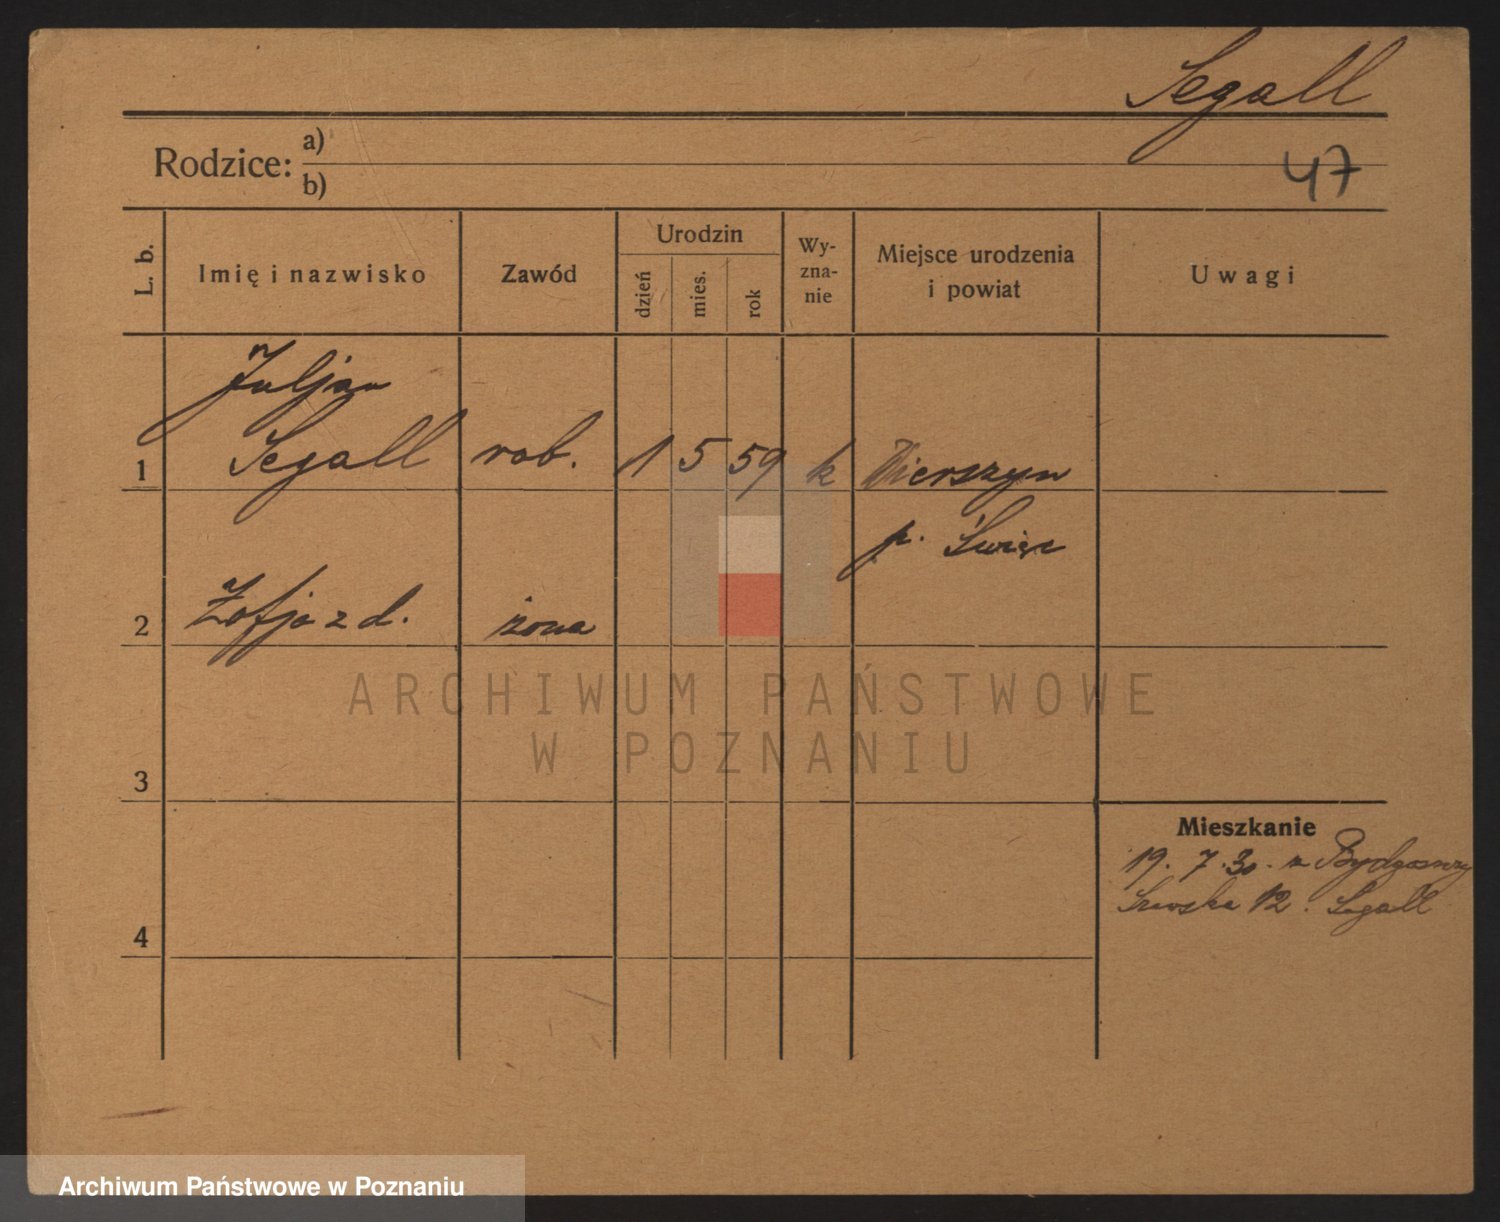 Segall
Rodzice: a)
b)
47
L. b.
Imię i nazwisko
Zawód
Urodzin
dzień
mies.
rok
Wy-
zna-
nie
Miejsce urodzenia
i powiat
Uwagi
Juljan
1 Segall rob. 1 5 59 k Wierszyn
p. Świec
2 Zofja z d. żona
ARCHIWUM PAŃSTWOWE
W POZNANIU
3
Mieszkanie
19. 7. 30. z Bydgoszczy
12. Segall
4
Archiwum Państwowe w Poznaniu